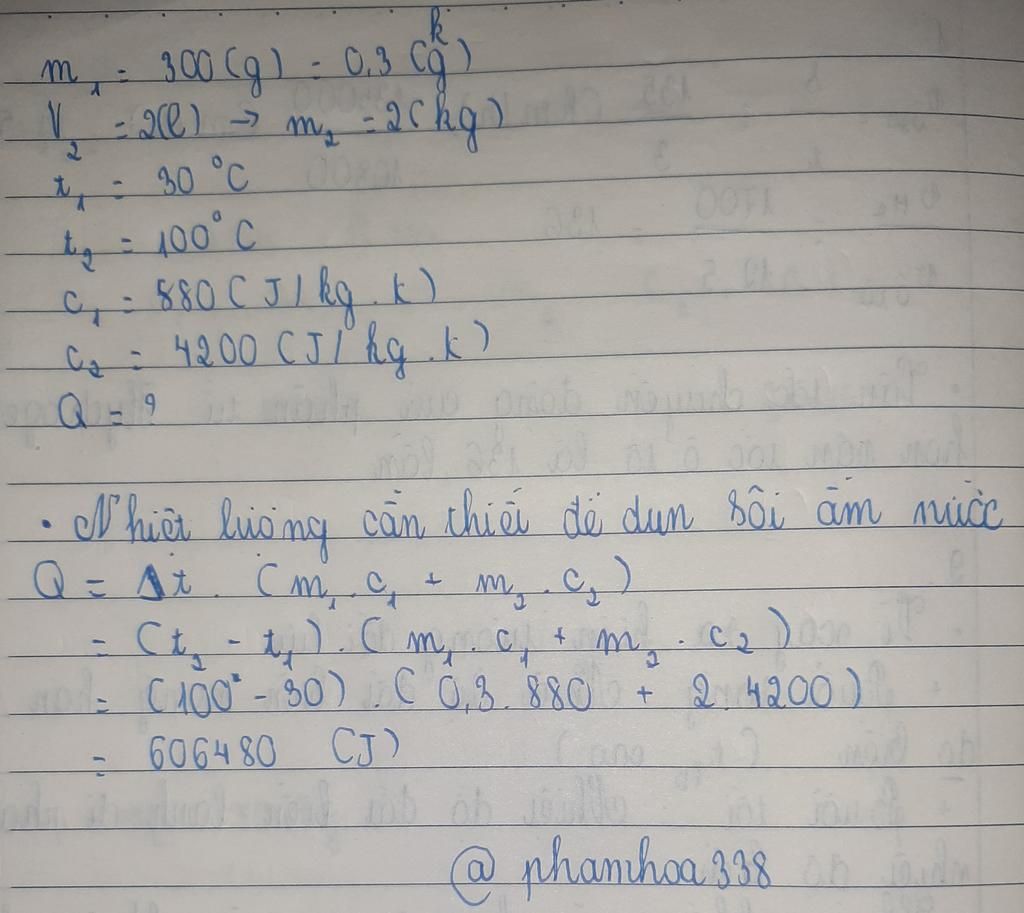 m₁ = 300(g) = 0,3(kg)
V₂ = 2(l) → m₂ = 2(kg)
t₁ = 30°C
t₂ = 100°C
c₁ = 880(J/kg.k)
c₂ = 4200(J/kg.k)
Q = ?
• Nhiệt lượng cần thiết để đun sôi ấm nước
Q = Δt . (m₁.c₁ + m₂.c₂)
= (t₂ - t₁).(m₁.c₁ + m₂.c₂)
= (100° - 30).(0,3.880 + 2.4200)
= 606480 (J)
@phamhoa338